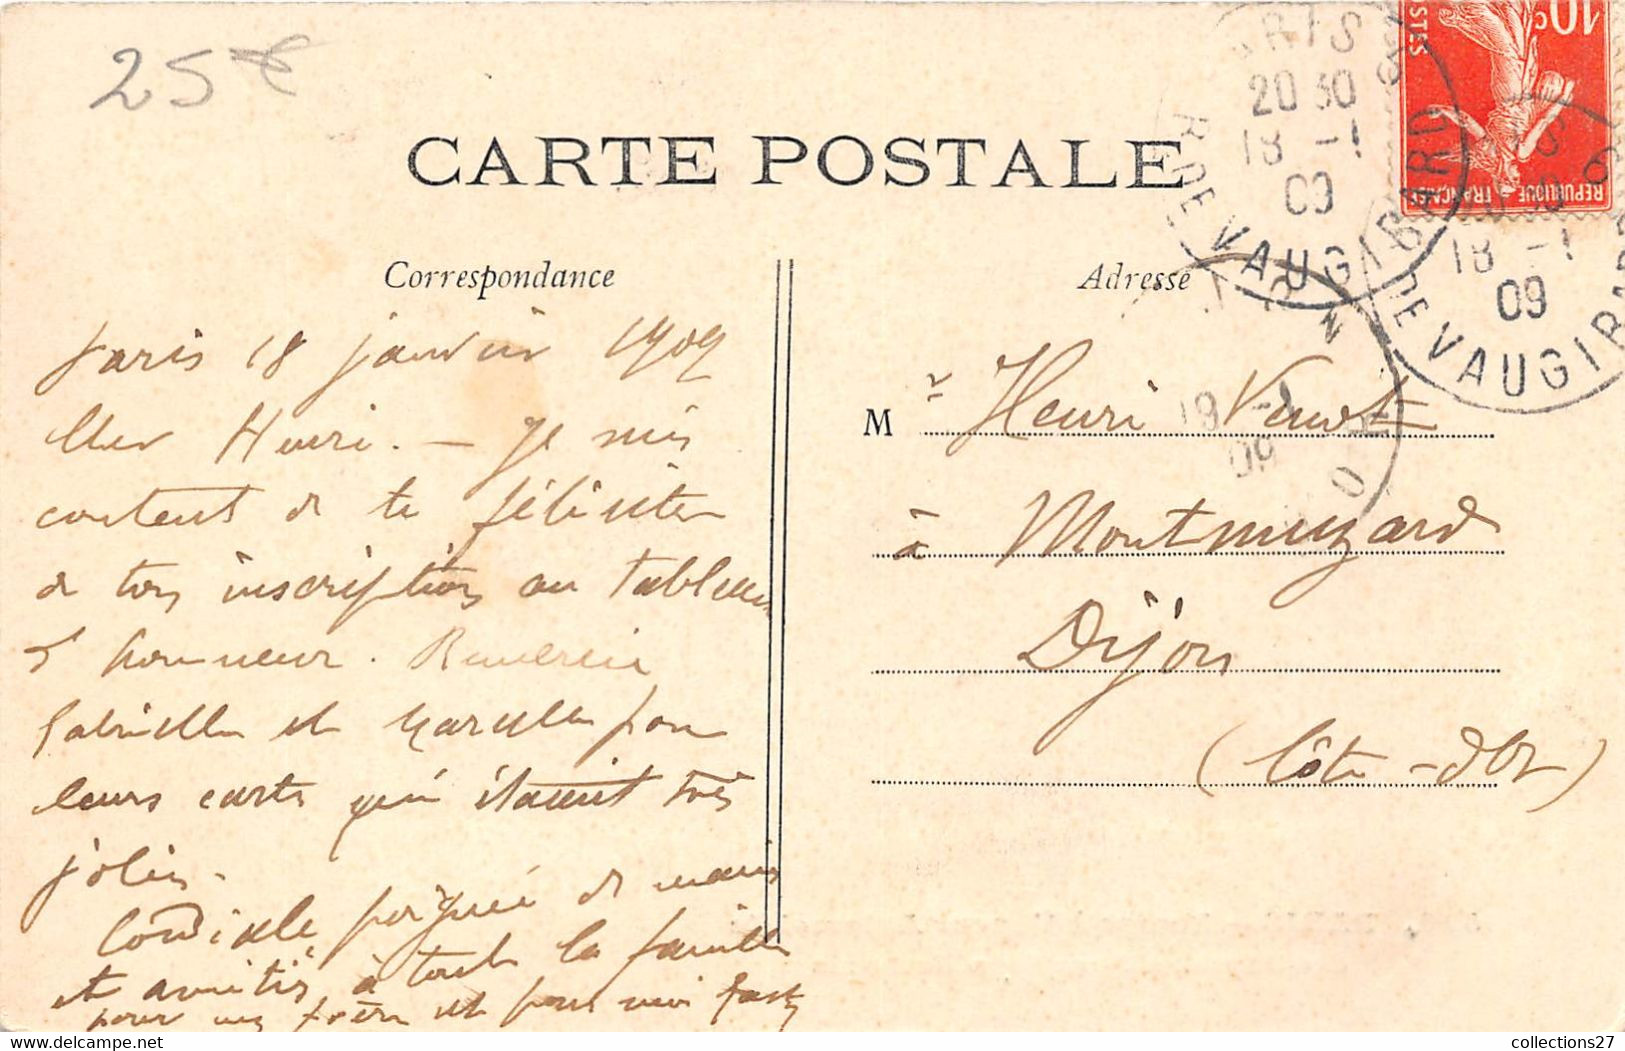 25€
CARTE POSTALE
Correspondance
Paris 18 janvier 1909
Cher Henri. — Je suis
content de te féliciter
de ton inscription au tableau
d'honneur. Remercie
Gabrielle et Marcelle pour
leurs cartes qui étaient très
jolies.
Cordiale poignée de mains
et amitiés à toute la famille
pour mon frère et pour moi
Adresse
Mr Henri
à Montmuzard
Dijon
(Côte-d'Or)
10c
POSTES
REPUBLIQUE FRANÇAISE
PARIS
20 30
18 -1
09
R. DE VAUGIRARD
18 -1
09
DE VAUGIRARD
19 -1
09
collections27